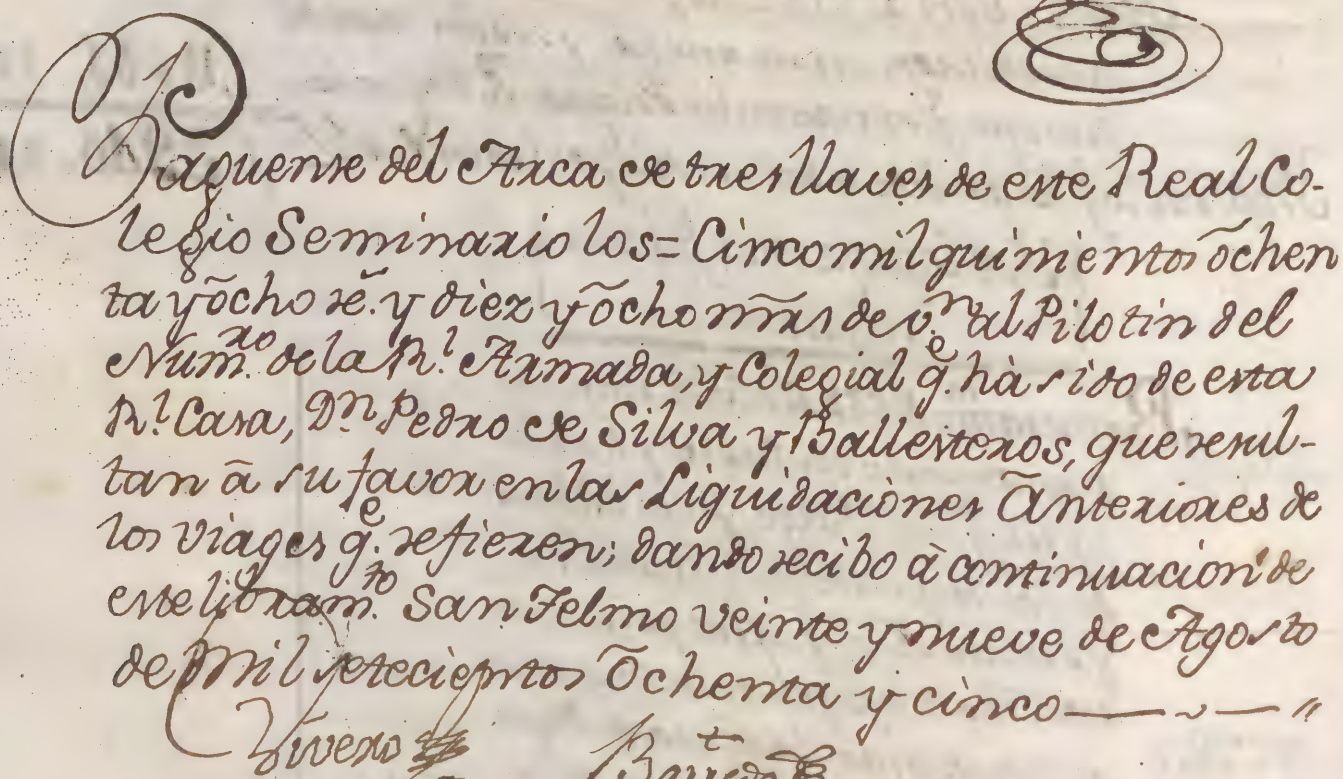 Paguense del Arca de tres llaves de este Real Co-
legio Seminario los = Cinco mil quinientos õchen
ta y õcho rˢ. y diez y õcho mr̃s de v.ⁿ al Pilotin del
Num.ʳᵒ de la R.ˡ Armada, y Colegial q.ᵉ hà sido de esta
R.ˡ Casa, Dⁿ Pedro de Silva y Ballesteros, que resul-
tan ã su favor en las Liquidaciònes ãnteriores de
los viages q.ᵉ refieren; dando recibo à continuaciòn de
este libram.ᵗᵒ San Telmo veinte y nueve de Agosto
de Mil setecientos õchenta y cinco
Vivero Barreda